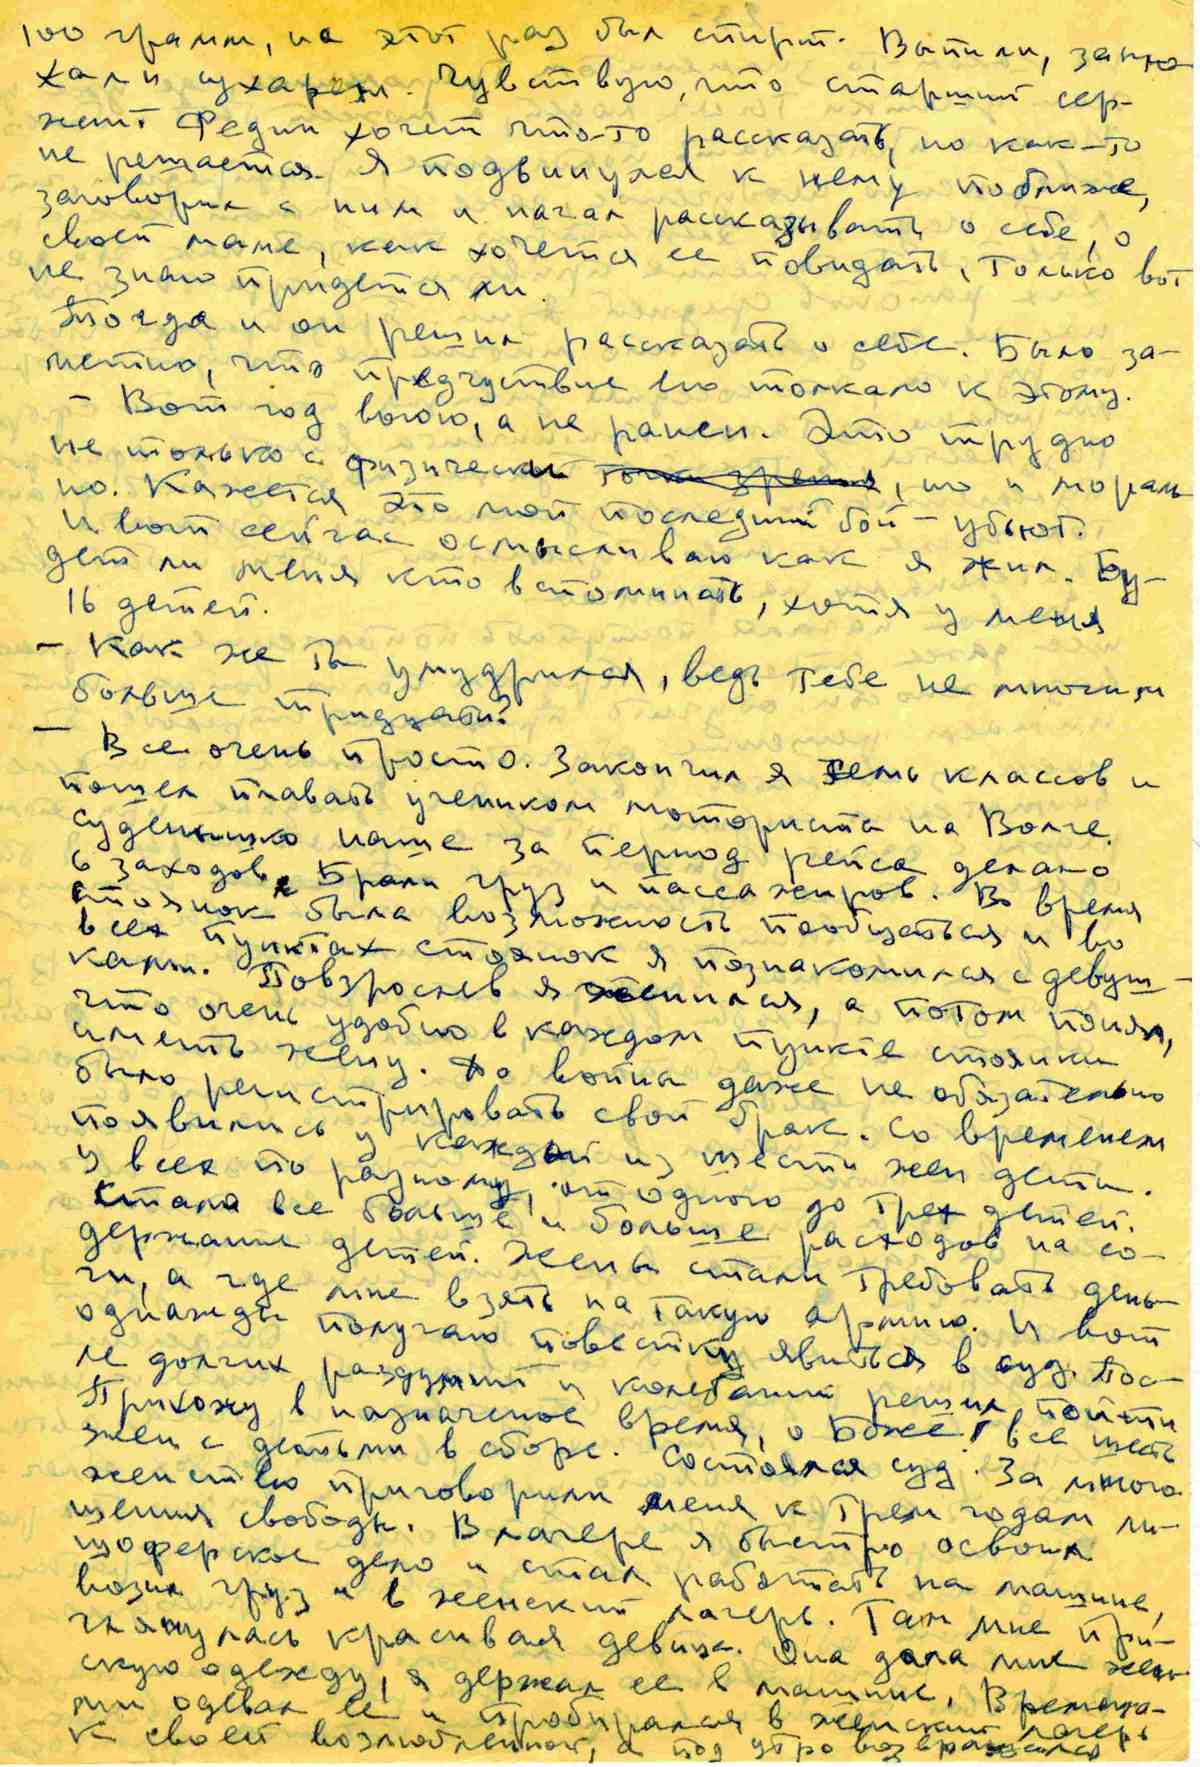 100 грамм, на этот раз был спирт. Выпили, заню-
хали сухарем. Чувствую, что старший сер-
жант Федин хочет что-то рассказать, но как-то
не решается. Я подвинулся к нему поближе,
заговорил с ним и начал рассказывать о себе, о
своей маме, как хочется ее повидать, только вот
не знаю придется ли.
Тогда и он решил рассказать о себе. Было за-
метно, что предчуствие его толкало к этому.
- Вот год воюю, а не ранен. Это трудно
не только с физически точки зрения, но и мораль
но. Кажется это мой последний бой - убьют.
И вот сейчас осмысливаю как я жил. Бу-
дет ли меня кто вспоминать, хотя у меня
16 детей.
- Как же ты умудрился, ведь тебе не многим
больше тридцати?
- Все очень просто. Закончил я семь классов и
пошел плавать учеником моториста на Волге.
Суденышко наше за период рейса делало
6 заходов. Брали груз и пассажиров. Во время
стоянок была возможность пообщаться и во
всех пунктах стоянок я познакомился с девуш-
ками. Повзрослев я женился, а потом понял,
что очень удобно в каждом пункте стоянки
иметь жену. До войны даже не обязательно
было регистрировать свой брак. Со временем
появились у каждой из шести жен дети.
У всех по разному, от одного до трех детей.
Стало все больше и больше расходов на со-
держание детей. Жены стали требовать день-
ги, а где мне взять на такую армию. И вот
однажды получаю повестку явиться в суд. Пос-
ле долгих раздумий и колебаний решил пойти
Прихожу в назначеное время, о Боже! все шесть
жен с детьми в сборе. Состоялся суд. За много
женство приговорили меня к трем годам ли-
шения свободы. В лагере я быстро освоил
шоферское дело и стал работать на машине,
возил груз и в женский лагерь. Там мне при-
глянулась красивая девица. Она дала мне жен-
скую одежду, я держал ее в машине. Времена-
ми одевал ее и пробирался в женский лагерь
к своей возлюбленной, а под утро возвращался